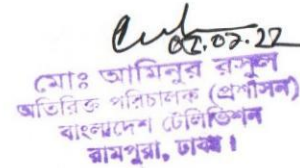 ০২.০২.২২
মোঃ আমিনুর রসুল
অতিরিক্ত পরিচালক (প্রশাসন)
বাংলাদেশ টেলিভিশন
রামপুরা, ঢাকা।